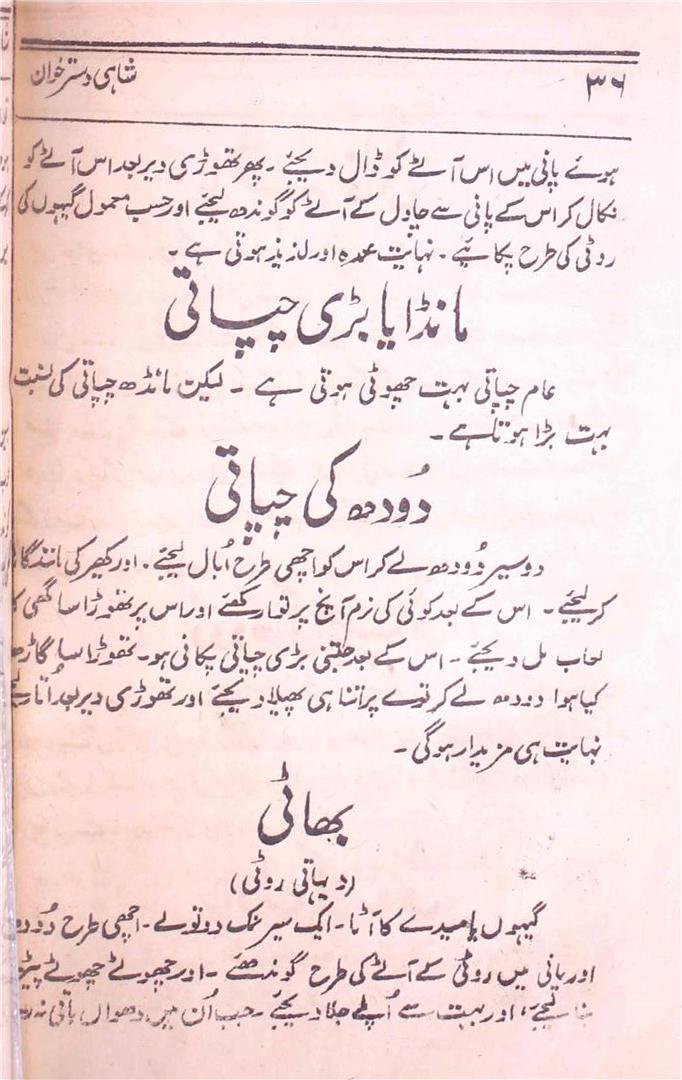 ۳۶
شاہی دسترخوان
ہوئے پانی میں اس آٹے کو ڈال دیجئے ۔ پھر تھوڑی دیر بعد اس آٹے کو
نکال کر اس کے پانی سے چاول کے آٹے کو گوندھ لیجئے اور حسب معمول گیہوں کی
روٹی کی طرح پکائیے ۔ نہایت عمدہ اور لذیذ ہوتی ہے ۔
مانڈا یا بڑی چپاتی
عام چپاتی بہت چھوٹی ہوتی ہے ۔ لیکن مانڈھ چپاتی کی نسبت
بہت بڑا ہوتا ہے ۔
دُودھ کی چپاتی
دو سیر دُودھ لے کر اس کو اچھی طرح اُبال لیجئے ۔ اور کھیر کی مانند
کر لیجئے ۔ اس کے بعد کوئی کی نرم آنچ پر توا رکھئے اور اس پر تھوڑا سا گھی کا
لعاب مل دیجئے ۔ اس کے بعد جتنی بڑی چپاتی پکانی ہو ۔ تھوڑا سا
کیا ہوا دودھ لے کر توے پر اتنا ہی پھیلا دیجئے اور تھوڑی دیر بعد اُتار
نہایت ہی مزیدار ہوگی ۔
بھاٹی
(دیہاتی روٹی)
گیہوں یا میدے کا آٹا ۔ ایک سیر نمک دو تولے ۔ اچھی طرح
اور پانی میں روٹی کے آٹے کی طرح گوندھئے ۔ اور چھوٹے چھوٹے
بنا لیجئے ، اور بہت سے اُپلے جلا دیجئے ۔ جب اُن میں دھواں باقی نہ